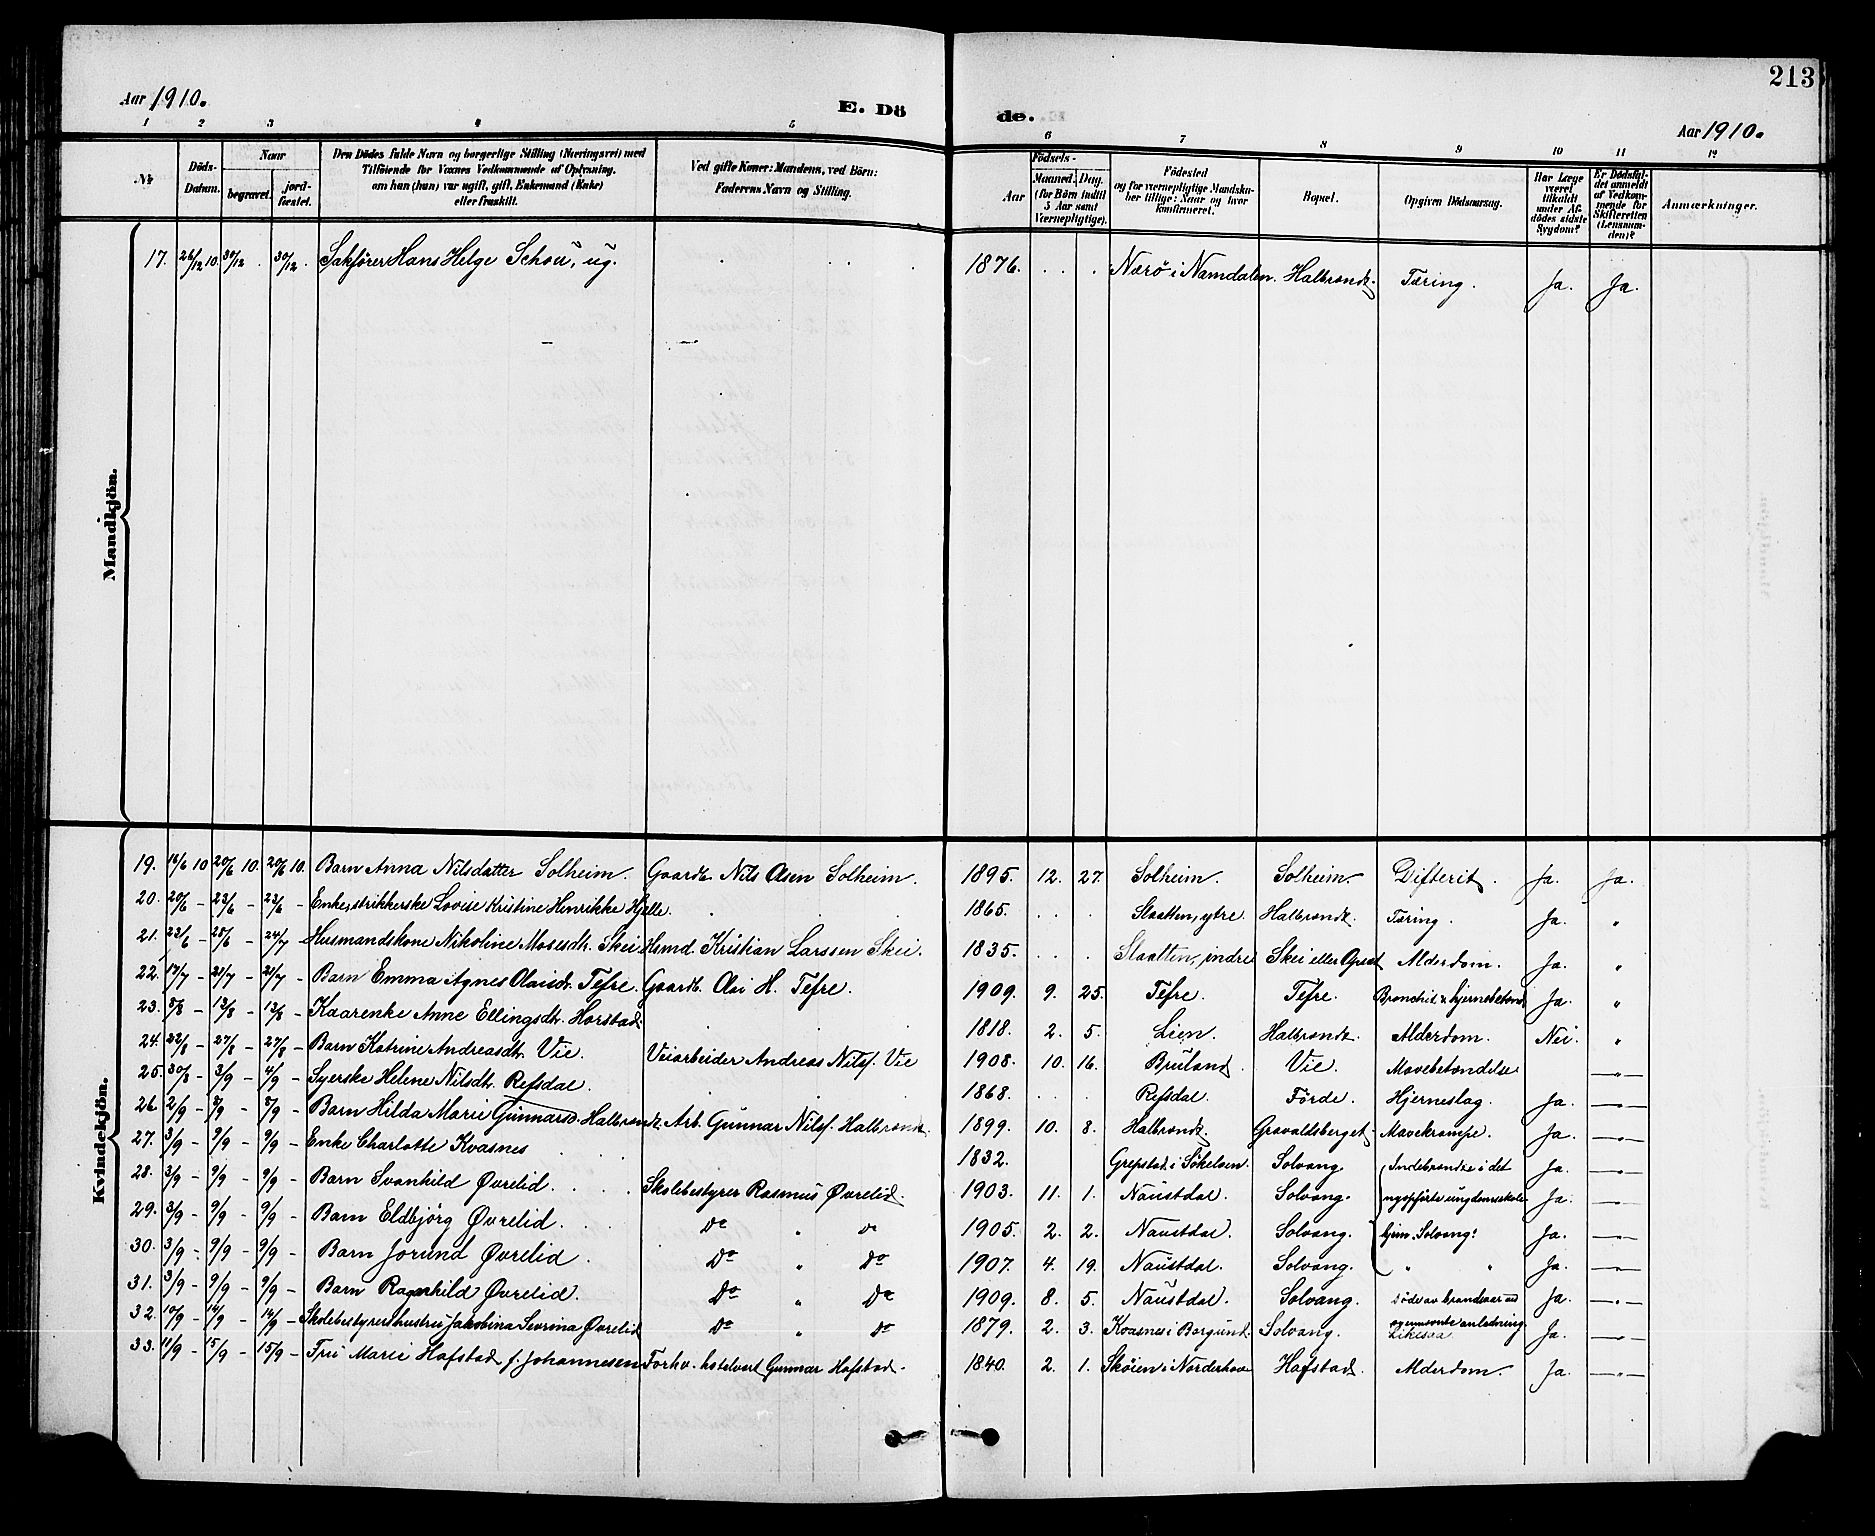 213
Aar 1910.
E. Dö
de.
Aar 1910.
1 2 3 4 5 6 7 8 9 10 11 12
Nr.
Döds-Datum.
Naar
begravet.
jordfæstet.
Den Dödes fulde Navn og borgerlige Stilling (Næringsvei) med
Tilföiende for Voxnes Vedkommende af Oplysning,
om han (hun) var ugift, gift, Enkemand (Enke)
eller fraskilt.
Ved gifte Koner: Mandens, ved Börn:
Faderens Navn og Stilling.
Födsels-
Aar
Maaned. Dag.
(for Börn indtil
5 Aar samt
Værnepligtige).
Födested
og for værnepligtige Mandskaber
tillige: Naar og hvor
konfirmeret.
Bopæl.
Opgiven Dödsaarsag.
Har Læge
været
tilkaldt
under Afdödes
sidste
Sygdom?
Er Dödsfaldet
anmeldt
af Vedkommende
for
Skifteretten
(Lensmanden)?
Anmærkninger.
Mandkjön.
17. 26/12 10. 30/12 . 30/12 . Sakfører Hans Helge Schou, ug. . . . 1876. . . . Nærö i Namdalen. Halbrendt. Tæring. Ja. Ja.
Kvindekjön.
19. 16/6 10 20/6 10. 20/6 10. Barn Anna Nilsdatter Solheim. Gaardb. Nils Olsen Solheim. 1895. 12. 27. Solheim. Solheim. Difterit. Ja. Ja.
20. 20/6 - 23/6 - 23/6 - Enke, strikkerske Lovise Kristine Henrikke Hjelle. 1865. . . . Slaatten, ytre. Halbrendt. Tæring. Ja. "
21. 23/6 - 28/6 - 24/7 - Husmandskone Nikoline Mosesdt. Skei Husmd. Kristian Larssen Skei. 1835. . . . Slaatten, indre Skei eller Alderdom. Ja. "
22. 17/7 - 21/7 - 21/7 - Barn Emma Agnes Olaisdt. Tefre. Gaardb. Olai H. Tefre. 1909. 9. 25. Tefre. Tefre. Bronchit & hjernebetænd. Ja. "
23. 8/8 - 13/8 - 13/8 - Kaarenke Anne Ellingsdt. Horstad. 1818. 2. 5. Lien. Halbrendt. Alderdom. Nei. "
24. 22/8 - 27/8 - 27/8 - Barn Katrine Andreasdt. Vie. Veiarbeider Andreas Nilsf. Vie 1908. 10. 16. Bruland. Vie. Mavebetændelse —"—
25. 30/8 - 3/9 - 4/9 - Syerske Helene Nilsdt. Refsdal. 1868. . . . Refsdal. Förde. Hjerneslag. Ja. —"—
26 2/9 - 8/9 - 8/9 - Barn Hilda Marie Gunnarsd. Halbrendt. Arb. Gunnar Nilsf. Halbrendt. 1899. 10. 8. Halbrendt. Gravaldsberget. Mavekrampe. Ja. —"—
27. 3/9 - 9/9 - 9/9 - Enke Charlotte Kvasnes 1832. Grepstad i Søkelven. Solvang Indebrændte i det Ja. —"—
28. 3/9 - 9/9 - 9/9 - Barn Svanhild Øvrelid. Skolebestyrer Rasmus Øvrelid. 1903. 11. 1. Naustdal. Solvang. nyopførte ungdomsskole- Ja. —"—
29. 3/9 - 9/9 - 9/9 - Barn Eldbjörg Øvrelid. Do " Do 1905. 2. 2. Naustdal. Solvang. hjem "Solvang". Ja. —"—
30. 3/9 - 9/9 - 9/9 - Barn Jorund Øvrelid. Do " Do 1907. 4. 19. Naustdal. Solvang. " " Ja. —"—
31. 3/9 - 9/9 - 9/9 - Barn Ragnhild Øvrelid. Do " Do 1909. 8. 5. Naustdal. Solvang. Døde av brandsaar ved Ja. —"—
32. 10/9 - 14/9 - 14/9 - Skolebestyrerhustru Jakobina Sevrina Øvrelid Do " Do 1879. 2. 3. Kvasnes i Borgund. Solvang. ovennævnte anledning Likesaa Ja. —"—
33. 11/9 - 15/9 - 15/9 - Fru Marie Hafstad f. Johannesen Forhv. hotelvert Gunnar Hafstad. 1840. 2. 1. Skøien i Norderhov Hafstad. Alderdom. Ja. —"—